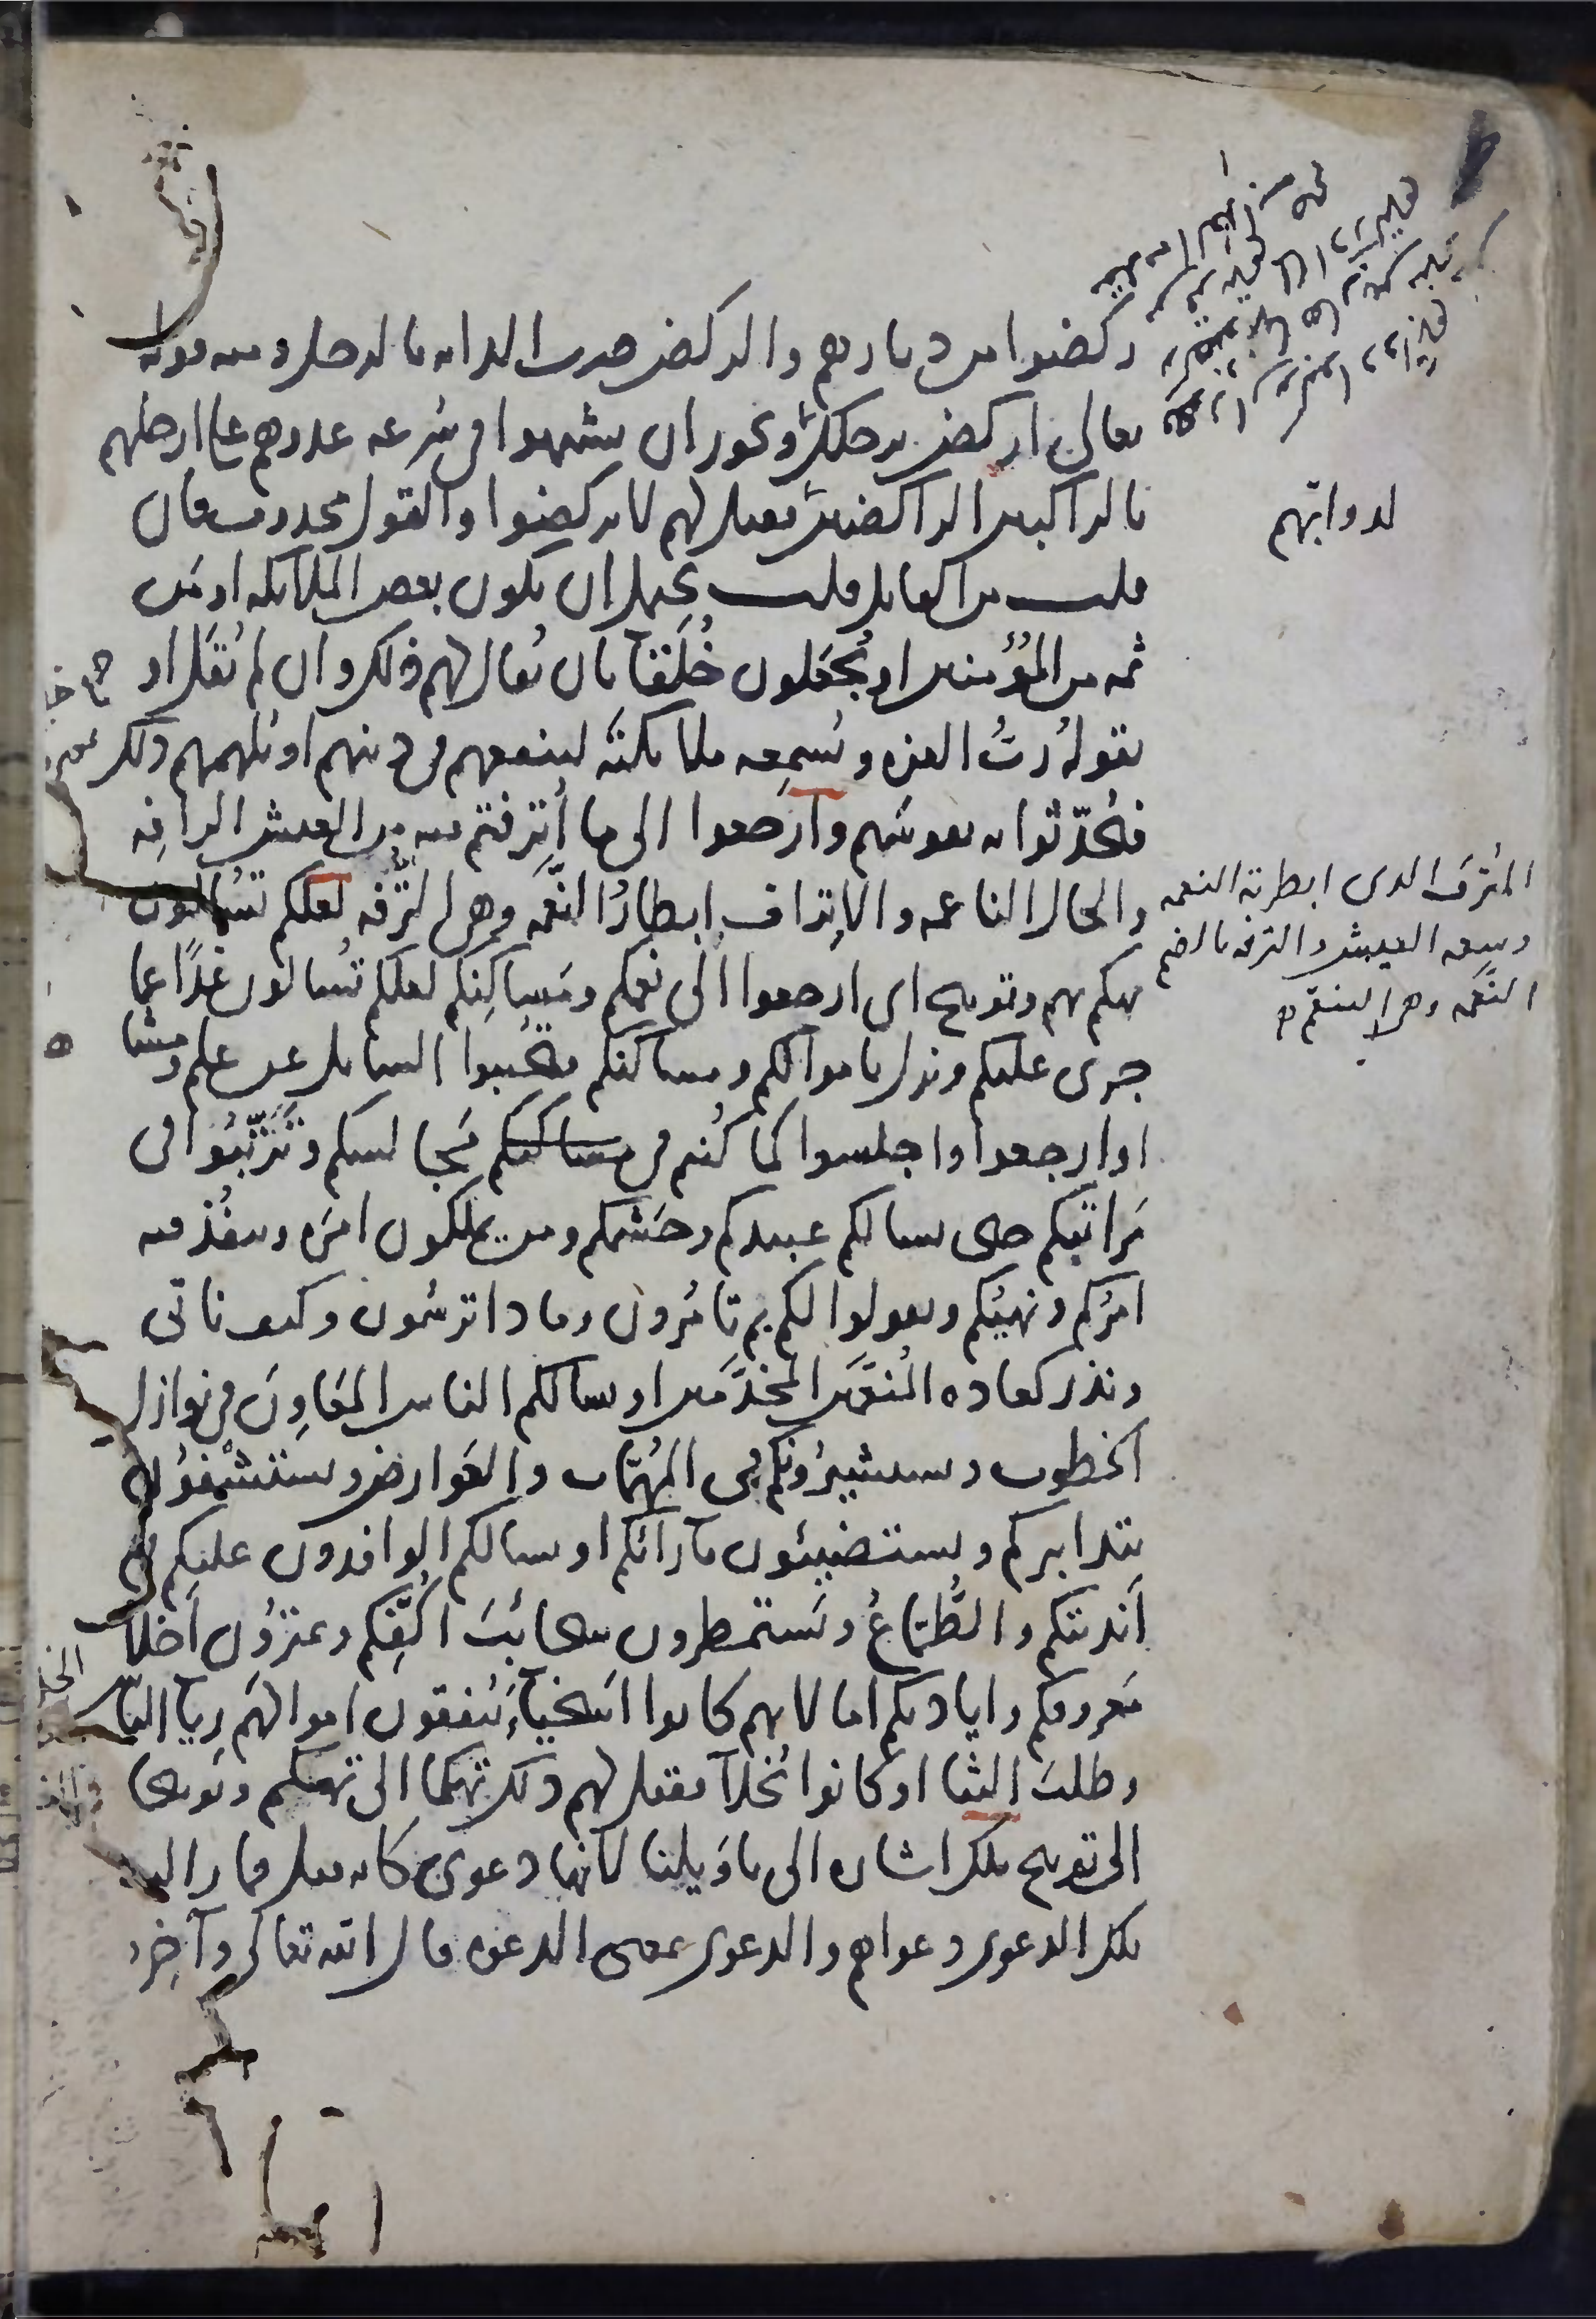 ركضوا من ديارهم والركض ضرب الدابه بالرجل ومنه قوله
تعالى اركض برجلك ويجوز ان يشبهوا فى سُرعه عدوهم على ارجلهم
بالراكبين الراكضين لدوابهم فقيل لهم لا تركضوا والقول محذوف فان
قلت من القايل قلت يحتمل ان يكون بعض الملايكه او مَن
ثمه من المؤمنين او يُجعَلون خُلَقآ بان يُقال لهم ذلك وان لم يُقَل او
يقوله ربُّ العزه ويُسمِعه ملائكتَه لينفعهم فى دينهم او يُلهمهم ذلك
فيُحدّثوا به نفوسَهم وارجعوا الى ما أُترفتم فيه من العيش الرافِه
والحال الناعمه والاِتراف اِبطارُ النِّعمَه وهى التُّرفَه لعلكم تُسألون
تهكم بهم وتوبيخ اى ارجعوا الى نعمكم ومَساكِنكم لعلكم تُسألون غدًا عما
جرى عليكم ونزل باموالكم ومساكنكم فتُجيبوا السايل عن علم ومشا
او ارجعوا واجلسوا كما كُنتم فى مساكنكم مَجالسكم وتَرَتّبُوا فى
مَراتبكم حتى يسالكم عبيدكم وحَشَمكم ومن يملكون امرَه وينفُذ فيه
امرُكم ونهيُكم ويقولوا لكم بم تامُرون وماذا ترسُمون وكيف ناتى
ونذر كعاده المُنعَّمين المخدَّمين او يسالكم الناس المعَاوِنَ فى نوازل
الخطوب ويستشيرُونكم فى المُهِمّات والعَوارض ويستشفُون
بتدابيركم ويستضيئون بآرائكم او يسالكم الوافدون عليكم
أندِيَتكم والطُّمّاعُ ويَستمطرون سحائبَ اكفّكم ويمترُون أخلآ
مَعروفكم واياديكم اما لانهم كانوا اسَخياءَ يُنفقون اموالَهم رِيآ الناس
وطلبَ الثنا او كانوا بُخلآ فقيل لهم ذلك تهكمًا الى تهكم وتوبيخًا
الى توبيخ تلك اشاره الى ياوَيلنا لانها دعوى كانه قيل فما زالت
تلك الدعوى دعواهم والدعوى بمعنى الدعوه قال الله تعالى وآخِرُ
لدوابّهم
المُترَف الذى ابطرته النعمه
وسعه العيش والترفه بالضم
النَّعمَه وهى التنعّم